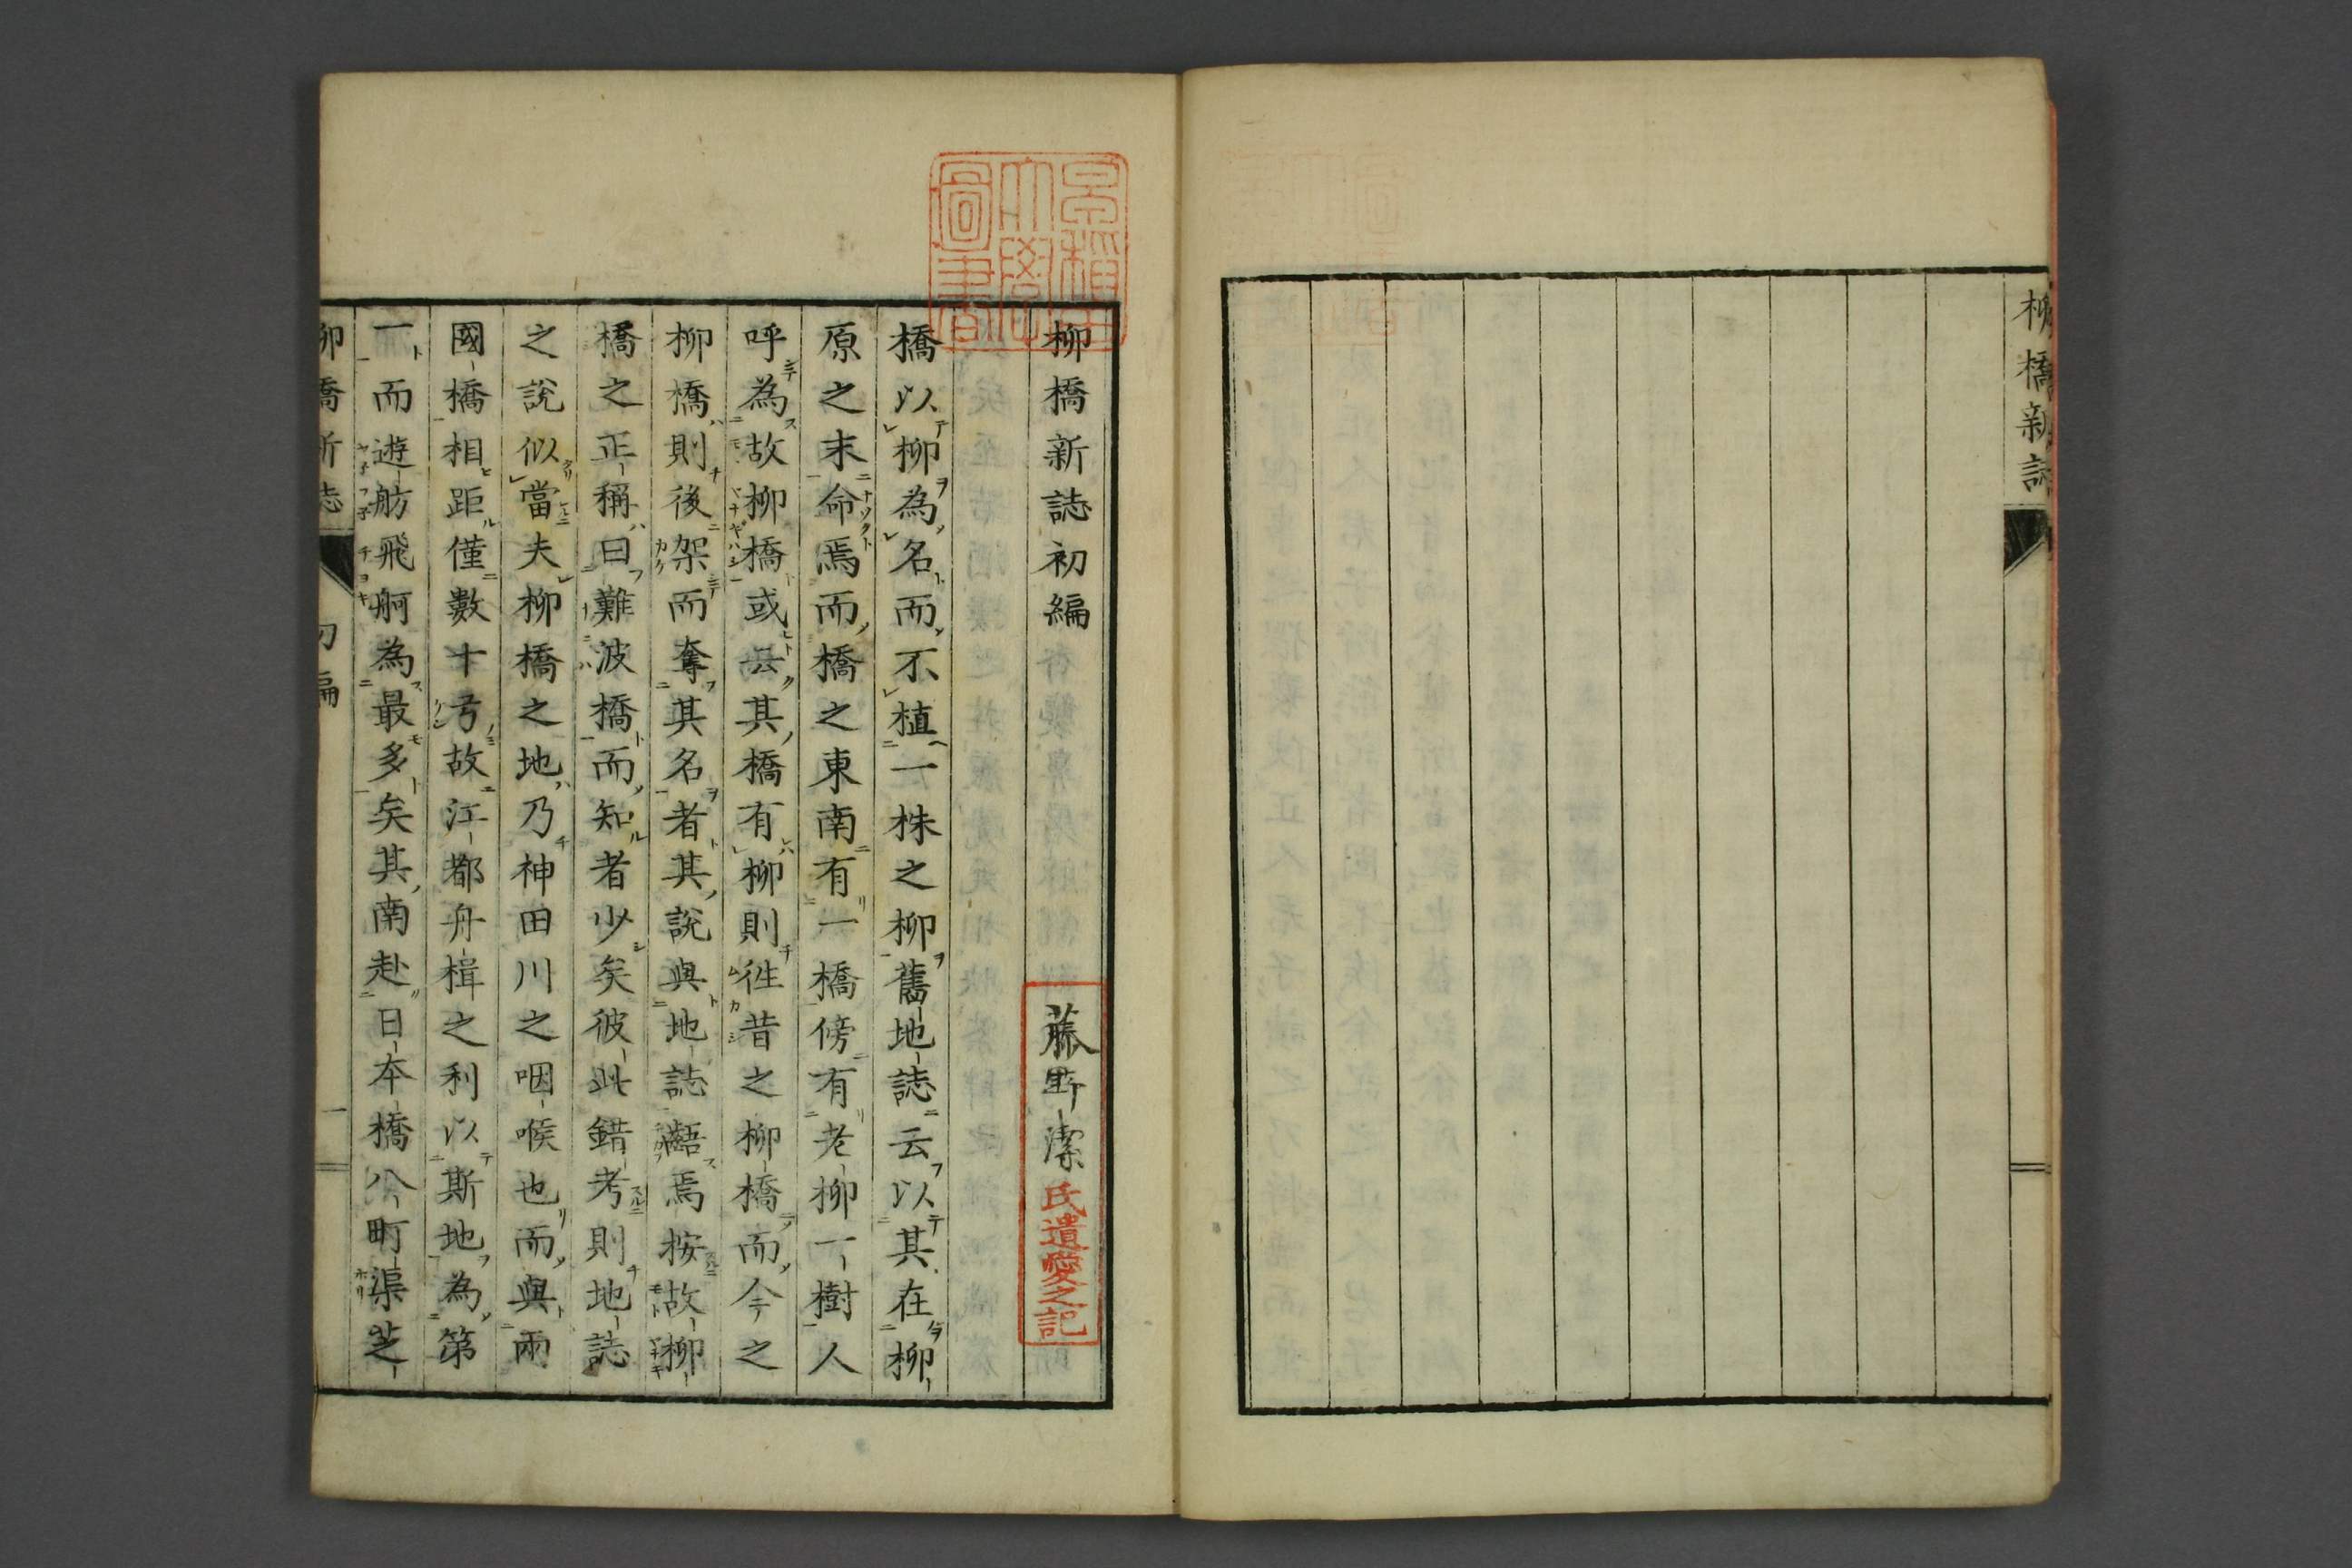 柳橋新誌
早稲田大學圖書
柳橋新誌初編
藤野潔氏遺愛之記
橋以柳為名而不植一株之柳舊地誌云以其在柳
原之末命焉而橋之東南有一橋傍有老柳一樹人
呼為故柳橋或云其橋有柳則徃昔之柳橋而今之
柳橋則後架而奪其名者其說與地誌齬焉按故柳
橋之正稱曰難波橋而知者少矣彼此錯考則地誌
之說似當夫柳橋之地乃神田川之咽喉也而與兩
國橋相距僅數十弓故江都舟楫之利以斯地為第
一而遊舫飛舸為最多矣其南赴日本橋八町渠芝
柳橋新誌
初編
一